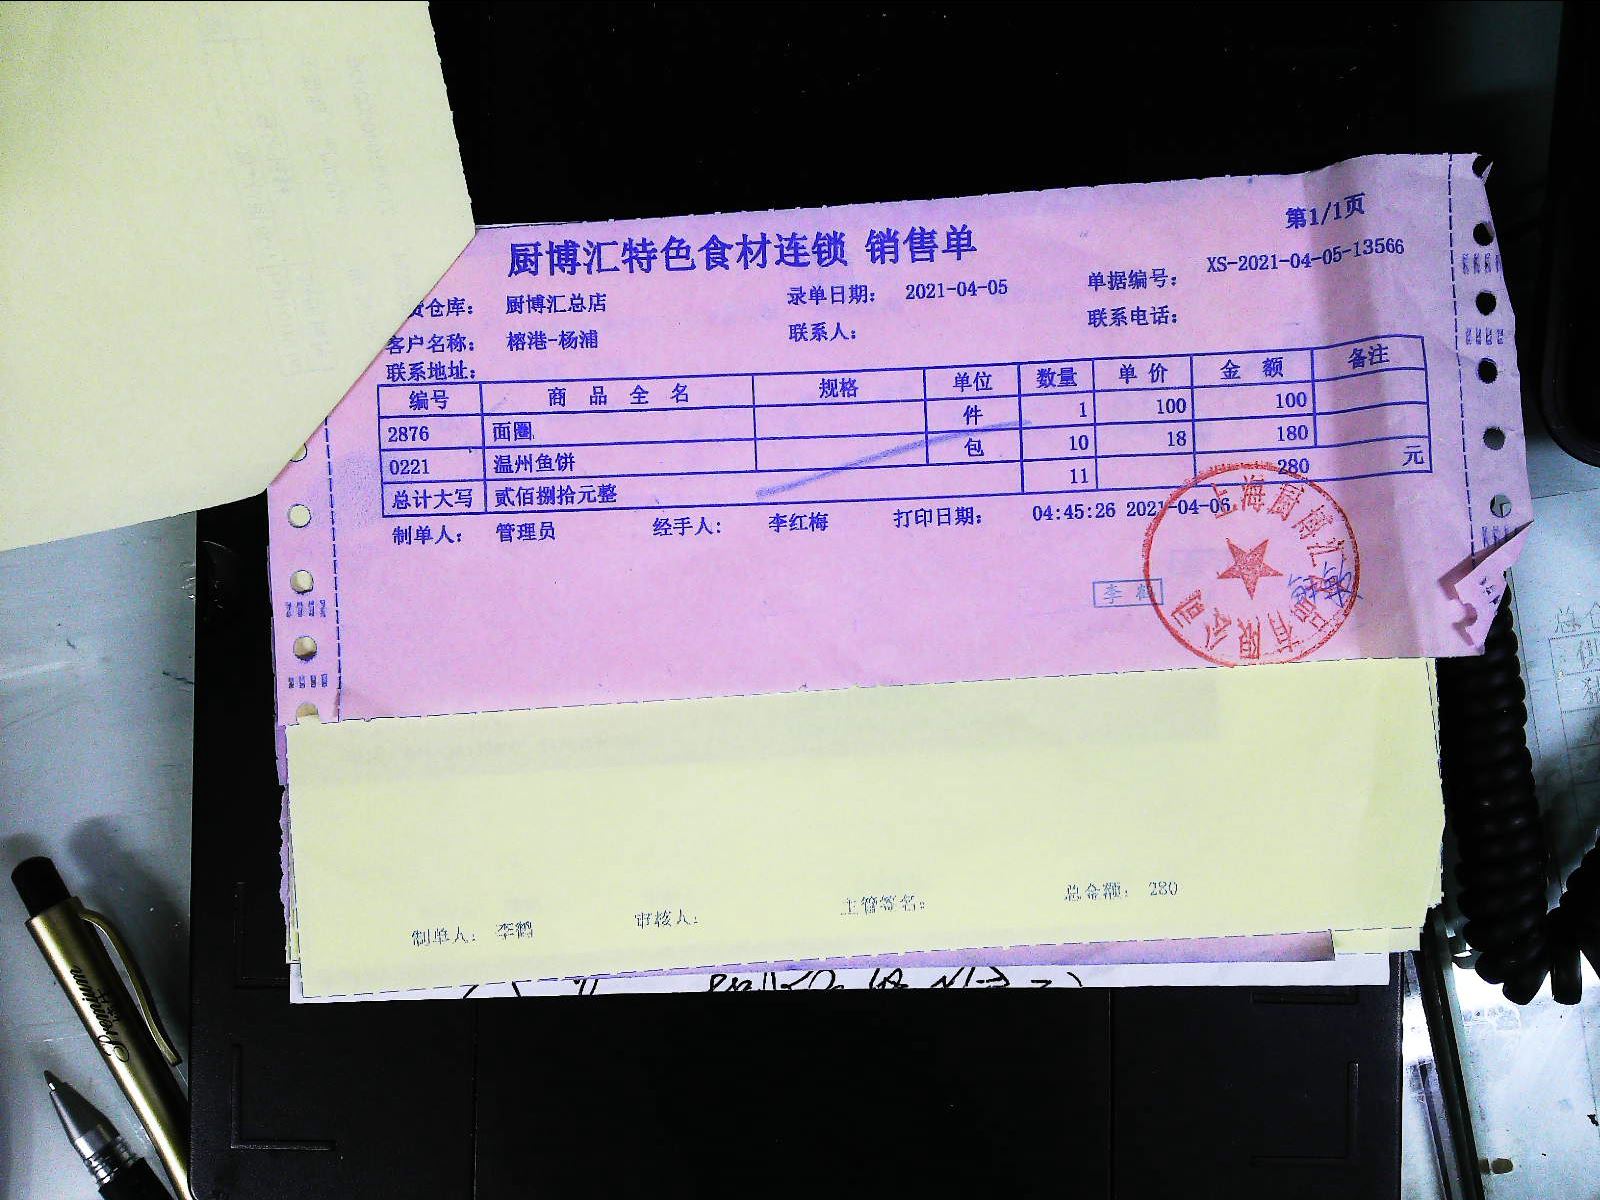 第1/1页
厨博汇特色食材连锁 销售单
仓库： 厨博汇总店 录单日期： 2021-04-05 单据编号： XS-2021-04-05-13566
客户名称： 榕港-杨浦 联系人： 联系电话：
联系地址：
编号 商品全名 规格 单位 数量 单价 金额 备注
2876 面圈 件 1 100 100
0221 温州鱼饼 包 10 18 180
总计大写 贰佰捌拾元整 11 280 元
制单人： 管理员 经手人： 李红梅 打印日期： 04:45:26 2021-04-06
李鹤
上海厨博汇品有限公司
制单人： 李鹤 审核人： 主管签名： 总金额： 280